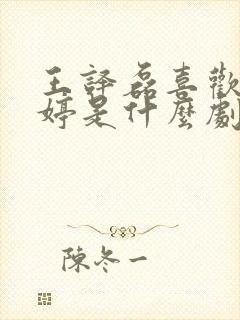 王譯磊喜歡
婷是什麼劇
陳冬一